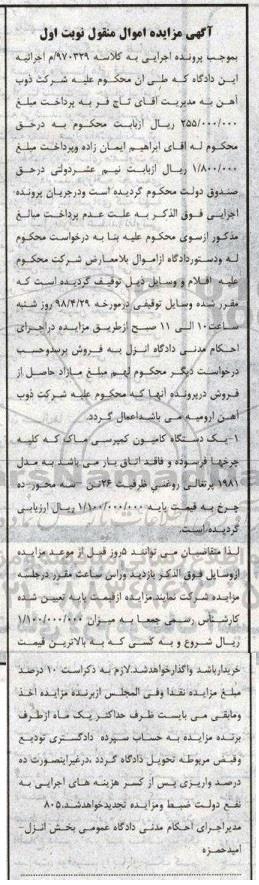 آگهی مزایده اموال منقول نوبت اول
بموجب پرونده اجرایی به کلاسه ۹۷۰۳۲۹/م اجرائیه
این دادگاه که طی ان محکوم علیه شرکت ذوب
آهن به مدیریت آقای تاج فر به پرداخت مبلغ
۲۵۵/۰۰۰/۰۰۰ ریال ازبابت محکوم به درحق
محکوم له اقای ابراهیم ایمان زاده وپرداخت مبلغ
۱/۸۰۰/۰۰۰ ریال ازبابت نیم عشردولتی درحق
صندوق دولت محکوم گردیده است ودرجریان پرونده
اجرایی فوق الذکر به علت عدم پرداخت مبالغ
مذکور ازسوی محکوم علیه بنا به درخواست محکوم
له ودستوردادگاه ازاموال بلامعارض شرکت محکوم
علیه اقلام و وسایل ذیل توقیف گردیده است که
مقرر شده وسایل توقیفی درمورخه ۹۸/۴/۲۹ روز شنبه
ساعت۱۰ الی ۱۱ صبح ازطریق مزایده دراجرای
احکام مدنی دادگاه انزل به فروش برسدوحسب
درخواست دیگر محکوم لهم مبلغ مازاد حاصل از
فروش درپرونده انها که محکوم علیه شرکت ذوب
آهن ارومیه می باشداعمال گردد.
۱-یک دستگاه کامیون کمپرسی ماک که کلیه
چرخها فرسوده و فاقد اتاق بار می باشد به مدل
۱۹۸۱ پرتقالی روغنی ظرفیت ۲۶تن سه محور ده
چرخ به قیمت پایه ۱/۱۰۰/۰۰۰/۰۰۰ ریال ارزیابی
گردیده است.
لذا متقاضیان می توانند ۵روز قبل از موعد مزایده
ازوسایل فوق الذکر بازدید وراس ساعت مقرر درجلسه
مزایده شرکت نمایند.مزایده ازقیمت پایه تعیین شده
کارشناس رسمی جمعا به میزان ۱/۱۰۰/۰۰۰/۰۰۰
ریال شروع و به کسی که به بالاترین قیمت
خریدارباشد واگذارخواهدشد.لازم به ذکراست ۱۰ درصد
مبلغ مزایده نقدا وفی المجلس ازبرنده مزایده اخذ
ومابقی می بایست ظرف حداکثر یک ماه ازطرف
برنده مزایده به حساب سپرده دادگستری تودیع
وقبض مربوطه تحویل دادگاه گردد ،درغیراینصورت ده
درصد واریزی پس از کسر هزینه های اجرایی به
نفع دولت ضبط ومزایده تجدیدخواهدشد.۸۰۵
مدیراجرای احکام مدنی دادگاه عمومی بخش انزل-
امیدحمزه